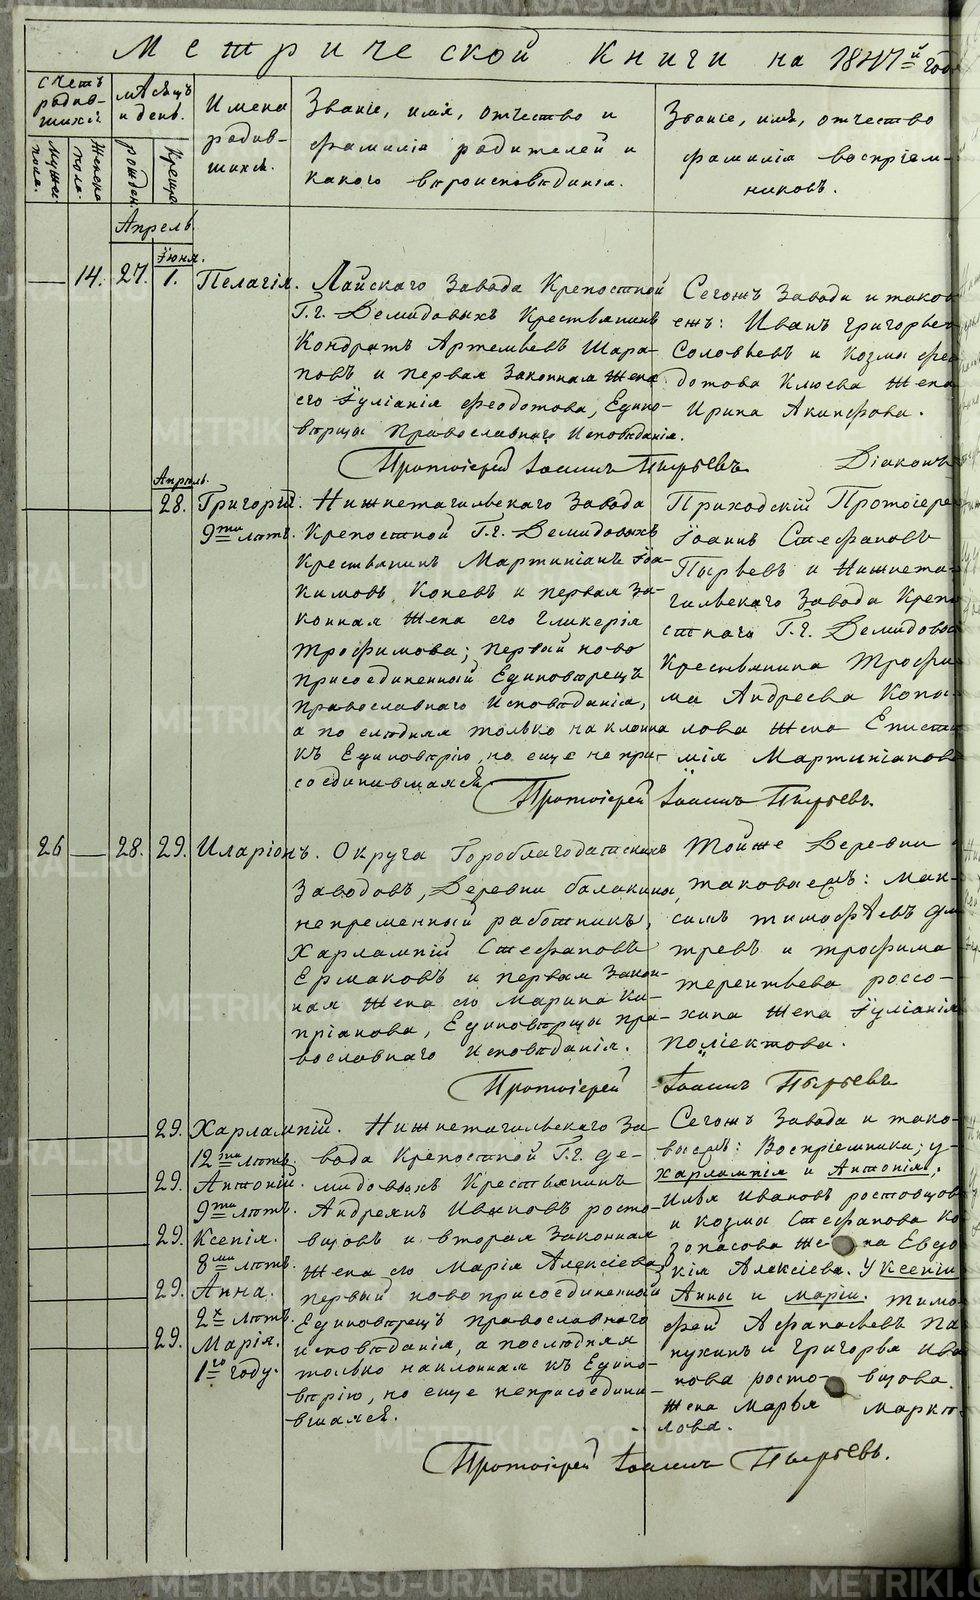 Метрической Книги на 1847й годъ
Счетъ родив-
шихся
Мужеска
пола.
Женска
пола.
Мѣсяцъ
и день.
рожден.
Крещен
Имена
родив-
шихся.
Званіе, имя, отчество и
фамилія родителей и
какого вѣроисповѣданія.
Званіе, имя, отчество
фамилія воспріем-
никовъ.
Апрель.
Іюня.
14. 27. 1. Пелагія.
Лайскаго Завода Крепостной
Г.г. Демидовыхъ Крестьянинъ
Кондратъ Артемьевъ Шара-
повъ и первая Законная Жена
его Іуліанія Феодотова, Едино-
вѣрцы Православнаго Исповѣданія.
Сегожъ Завода и таков
ежъ: Иванъ Григорьев
Соловьевъ и Козмы Фе
дотова Клюева Жена
Ирина Акинфова.
Протоіерей Іоаннъ Пырьевъ Діаконъ
Апрель.
28. Григорій.
9ти лѣтъ.
Нижнетагильскаго Завода
Крепостной Г.г. Демидовыхъ
Крестьянинъ Мартиніанъ Іоа-
кимовъ Копевъ и первая За-
конная Жена его Гликерія
Трофимова; первый ново
присоединенный Единовѣрецъ
Православнаго Исповѣданія,
а послѣдняя только наклонна
къ Единовѣрію, но еще не при-
соединившаяся.
Приходскій Протоіерей
Іоаннъ Стефановъ
Пырьевъ и Нижнета-
гильскаго Завода Крепо
стнаго Г.г. Демидовы
Крестьянина Трофи
ма Андреева Копы-
лова Жена Епистим
мія Мартиніанова
Протоіерей Іоаннъ Пырьевъ.
26 28. 29. Иларіонъ.
Округа Гороблагодатскихъ
Заводовъ, Деревни Балакина,
непременный работникъ,
Харлампій Стефановъ
Ермаковъ и первая Закон-
ная Жена его Марина Ки-
пріанова, Единовѣрцы Пра-
вославнаго Исповѣданія.
Тойже Деревни
таковаежъ: Мак-
симъ Тимофѣевъ Дми
тревъ и Трофима
Терентьева Россо-
хина Жена Іуліанія
Поліектова.
Протоіерей Іоаннъ Пырьевъ
29. Харлампій.
12ти лѣтъ.
29. Антоній.
9ти лѣтъ.
29. Ксенія.
8ми лѣтъ.
29. Анна.
2х лѣтъ.
29. Марія.
1го году.
Нижнетагильскаго За-
вода Крепостной Г.г. Де-
мидовыхъ Крестьянинъ
Андреянъ Ивановъ Росто-
вцовъ и вторая Законная
Жена его Марія Алексіева,
первый новоприсоединенный
Единовѣрецъ Православнаго
исповѣданія, а послѣдняя
только наклонная къ Едино-
вѣрію, но еще неприсоедини-
вшаяся.
Сегожъ Завода и тако-
выежъ: Воспріемники; у
Харлампія и Антонія;
Илья Ивановъ Ростовцовъ
и Козмы Стефанова Ко
зопасова Жена Евдо
кія Алексіева. У Ксеніи
Анны и Маріи. Тимо
фей Афанасьевъ Па
нухинъ и Григорья Ива
нова Ростовцова
Жена Марья Маркѣ-
лова.
Протоіерей Іоаннъ Пырьевъ.
METRIKI.GASO-URAL.RU